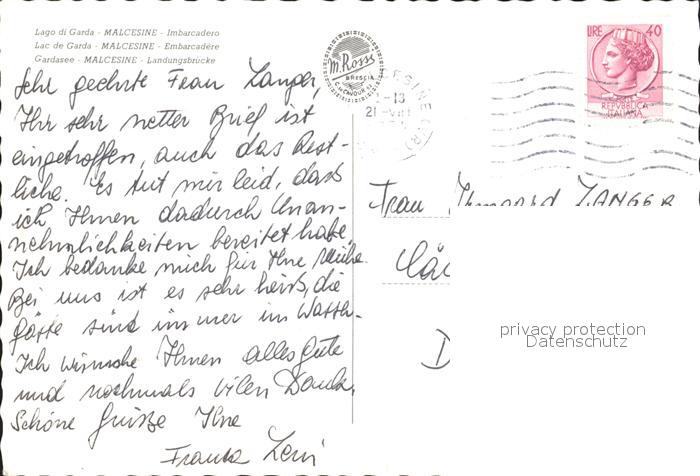 Lago di Garda - MALCESINE - Imbarcadero
Lac de Garda - MALCESINE - Embarcadère
Gardasee - MALCESINE - Landungsbrücke
M. Rossi
BRESCIA
LIRE 40
REPVBBLICA
ITALIANA
Sehr geehrte Frau Zanger,
Ihr sehr netter Brief ist
eingetroffen, auch das Rest-
liche. Es tut mir leid, dass
ich Ihnen dadurch Unan-
nehmlichkeiten bereitet habe
Ich bedanke mich für Ihre Mühe.
Bei uns ist es sehr heiss, die
gäste sind immer im Wasser.
Ich wünsche Ihnen alles gute
und nochmals vilen Dank.
Schöne grüsse Ihre
Frau Irmgard ZANGER
D
privacy protection
Datenschutz